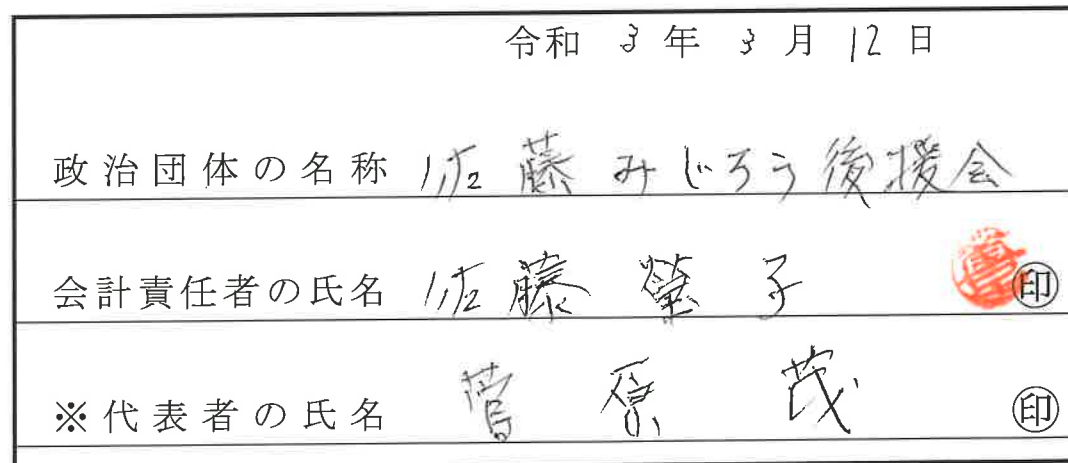 令和 3 年 3 月 12 日
政治団体の名称 佐藤みじろう後援会
会計責任者の氏名 佐藤 榮子 印
※代表者の氏名 菅原 茂 印